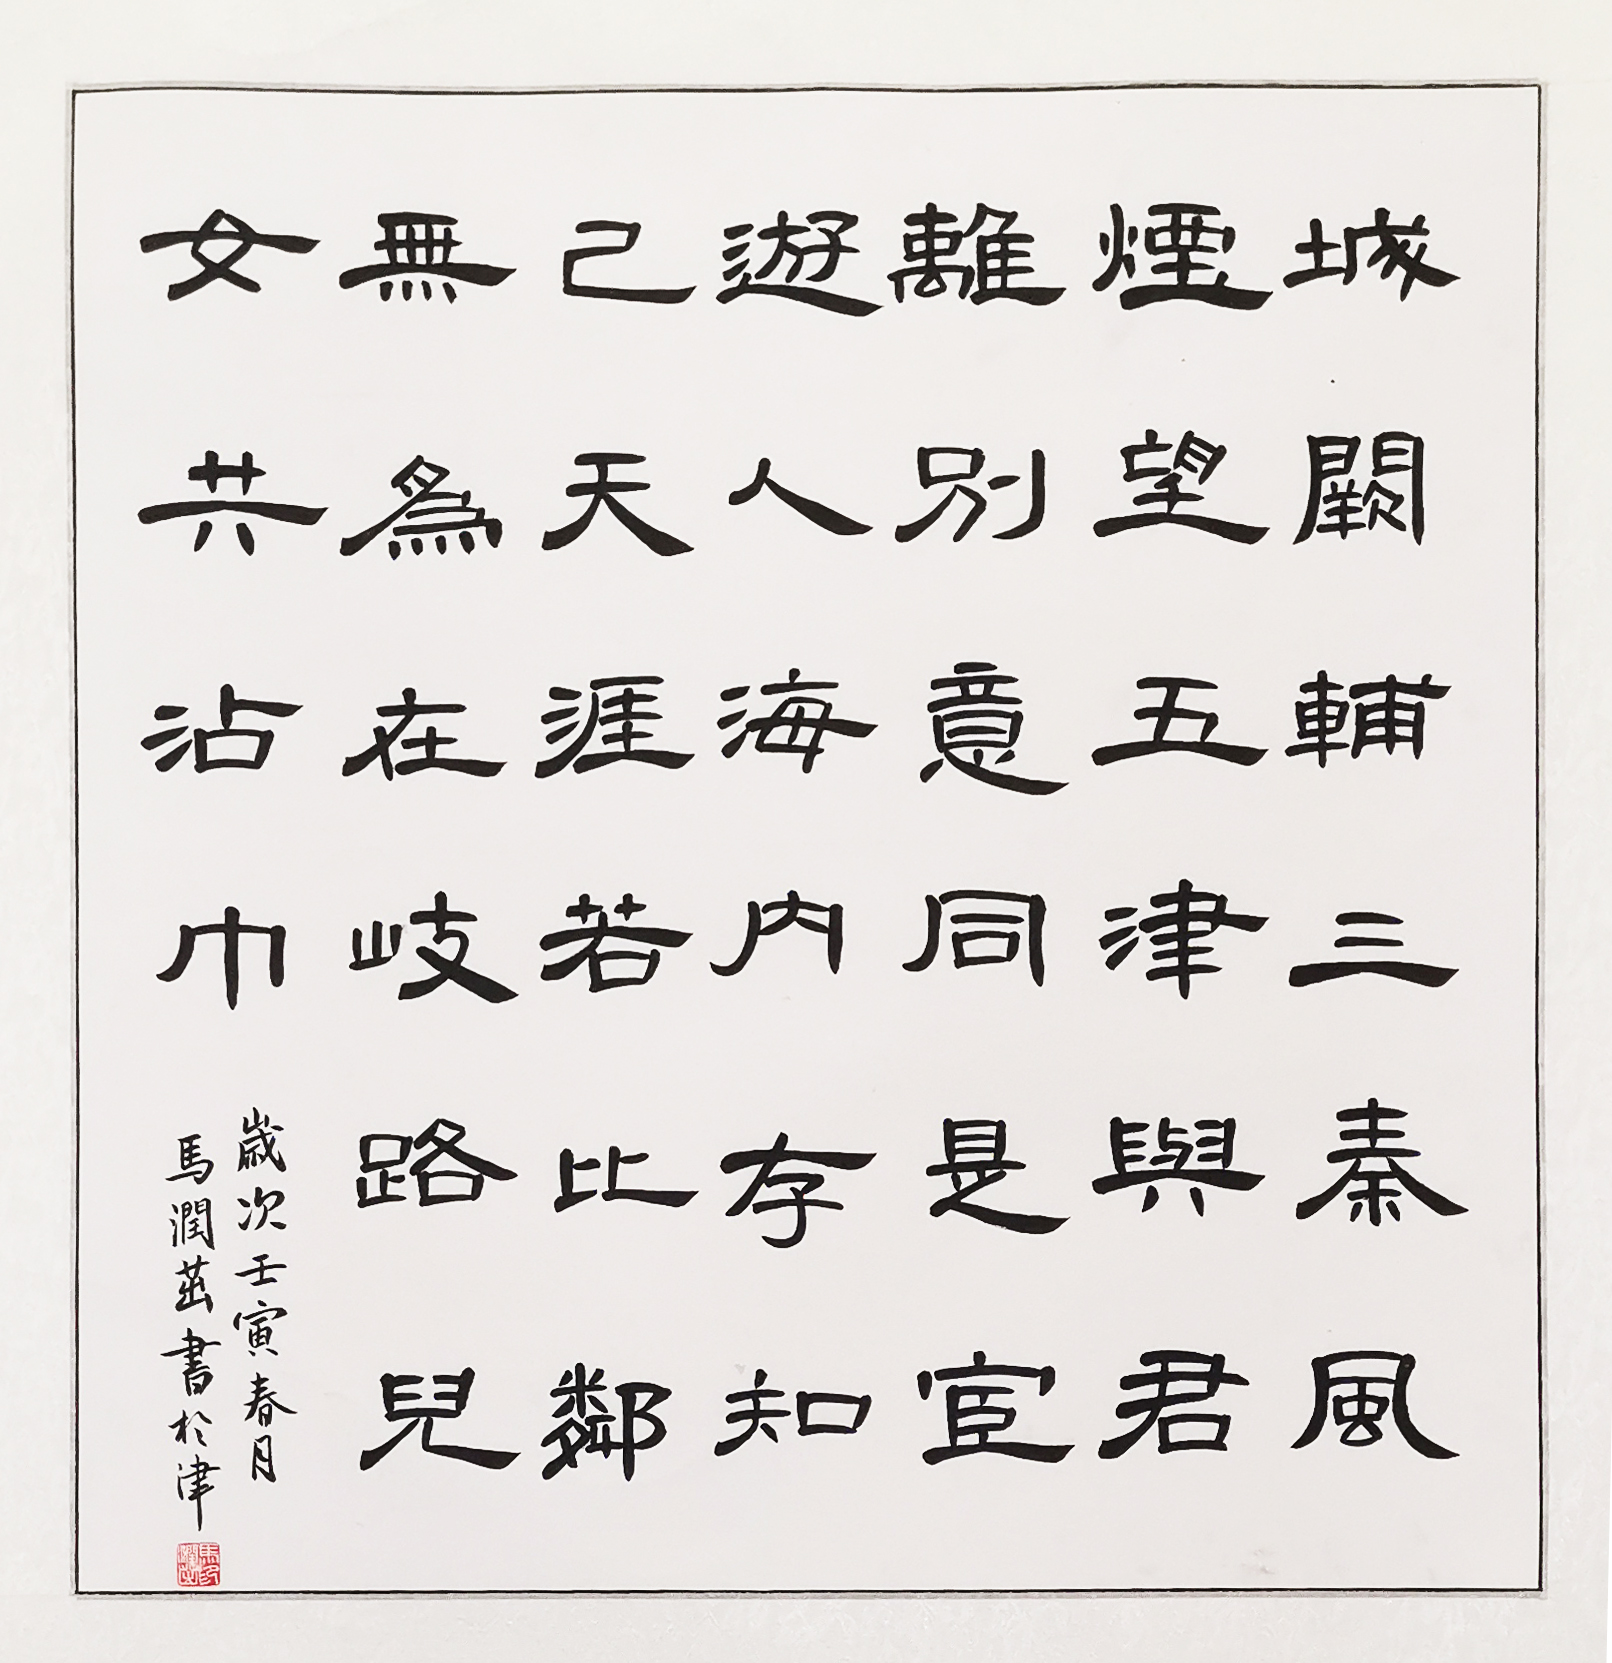 城闕輔三秦風
煙望五津與君
離別意同是宦
遊人海內存知
己天涯若比鄰
無為在岐路兒
女共沾巾
歲次壬寅春月
馬潤茁書於津